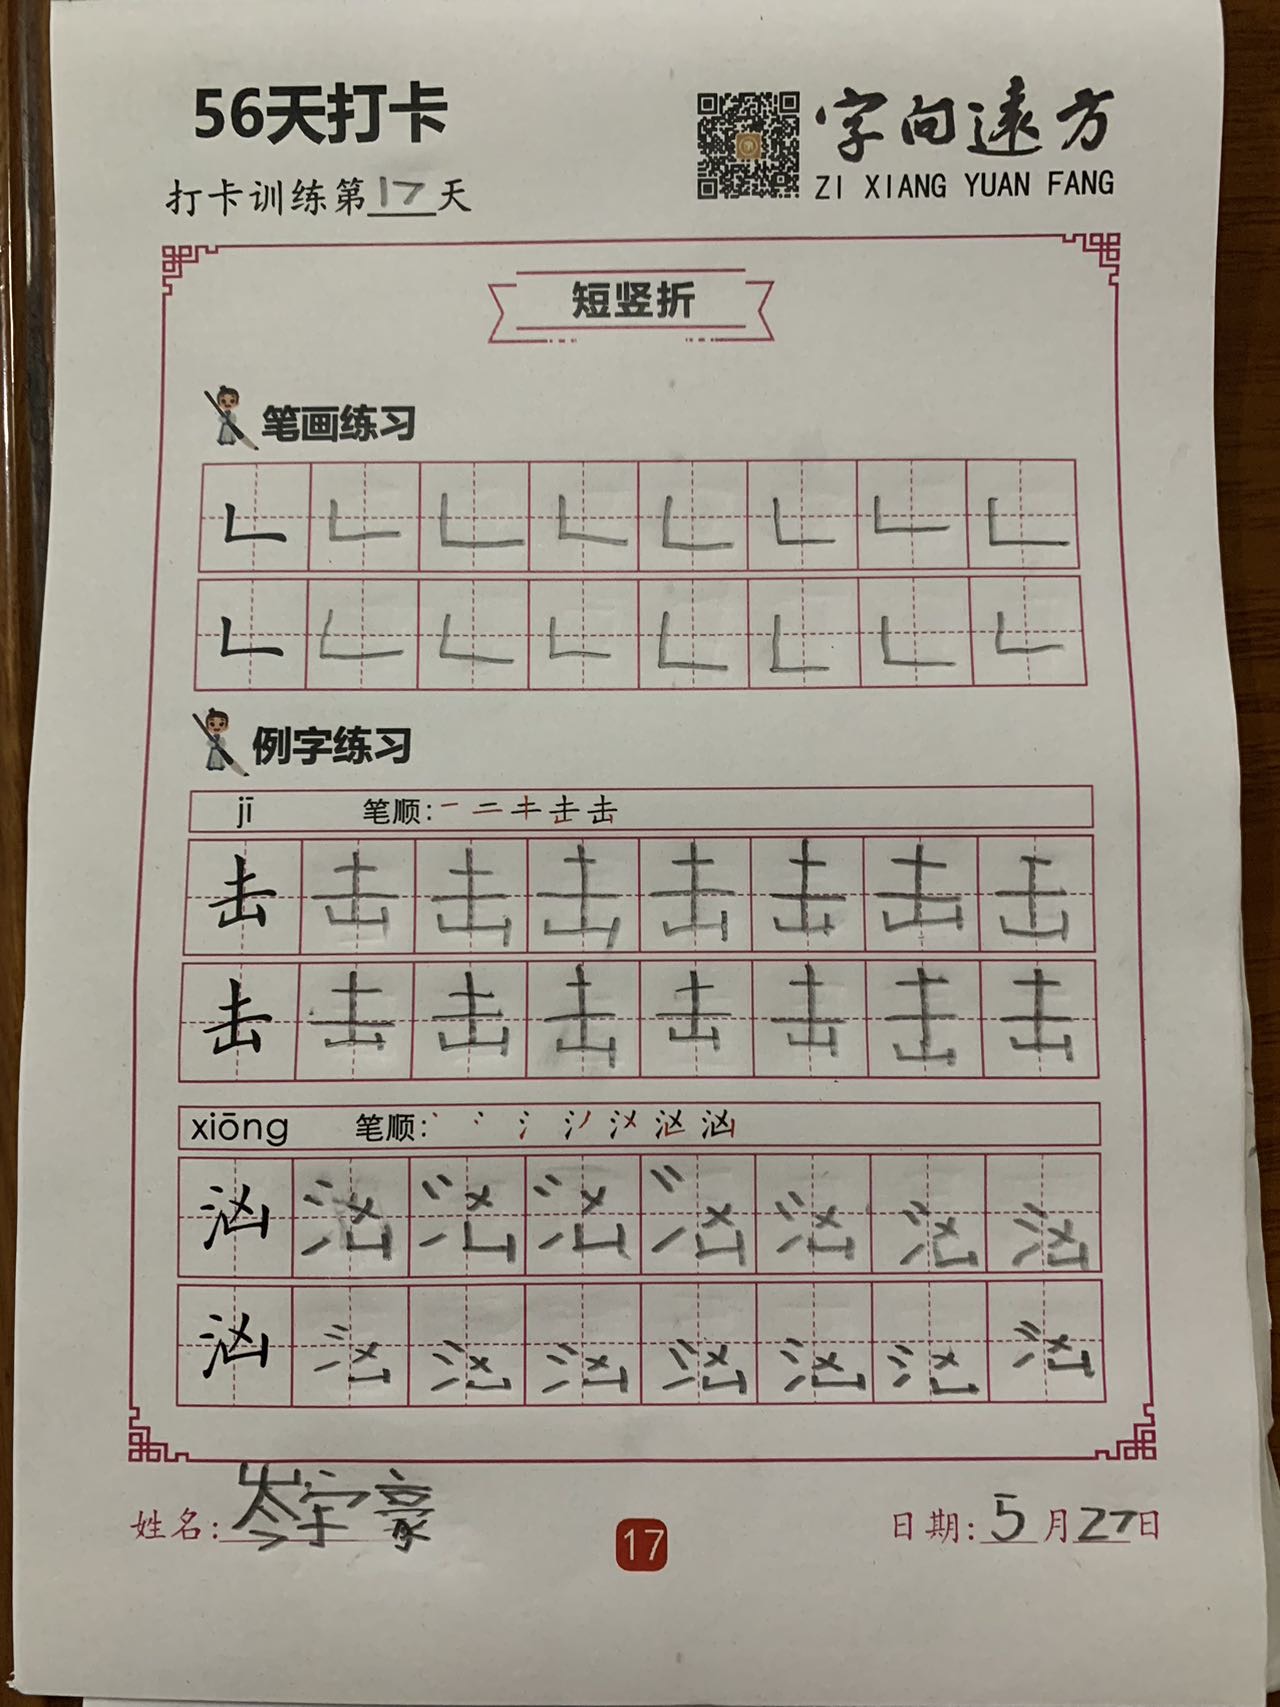 56天打卡
字向遠方
ZI XIANG YUAN FANG
打卡训练第17天
短竖折
笔画练习
𠃊 𠃊 𠃊 𠃊 𠃊 𠃊 𠃊 𠃊
𠃊 𠃊 𠃊 𠃊 𠃊 𠃊 𠃊 𠃊
例字练习
jī 笔顺: 一 二 キ 击 击
击 击 击 击 击 击 击 击
击 击 击 击 击 击 击 击
xiōng 笔顺: 汹
汹 汹 汹 汹 汹 汹 汹 汹
汹 汹 汹 汹 汹 汹 汹 汹
姓名: 岑宇豪
17
日期: 5月27日